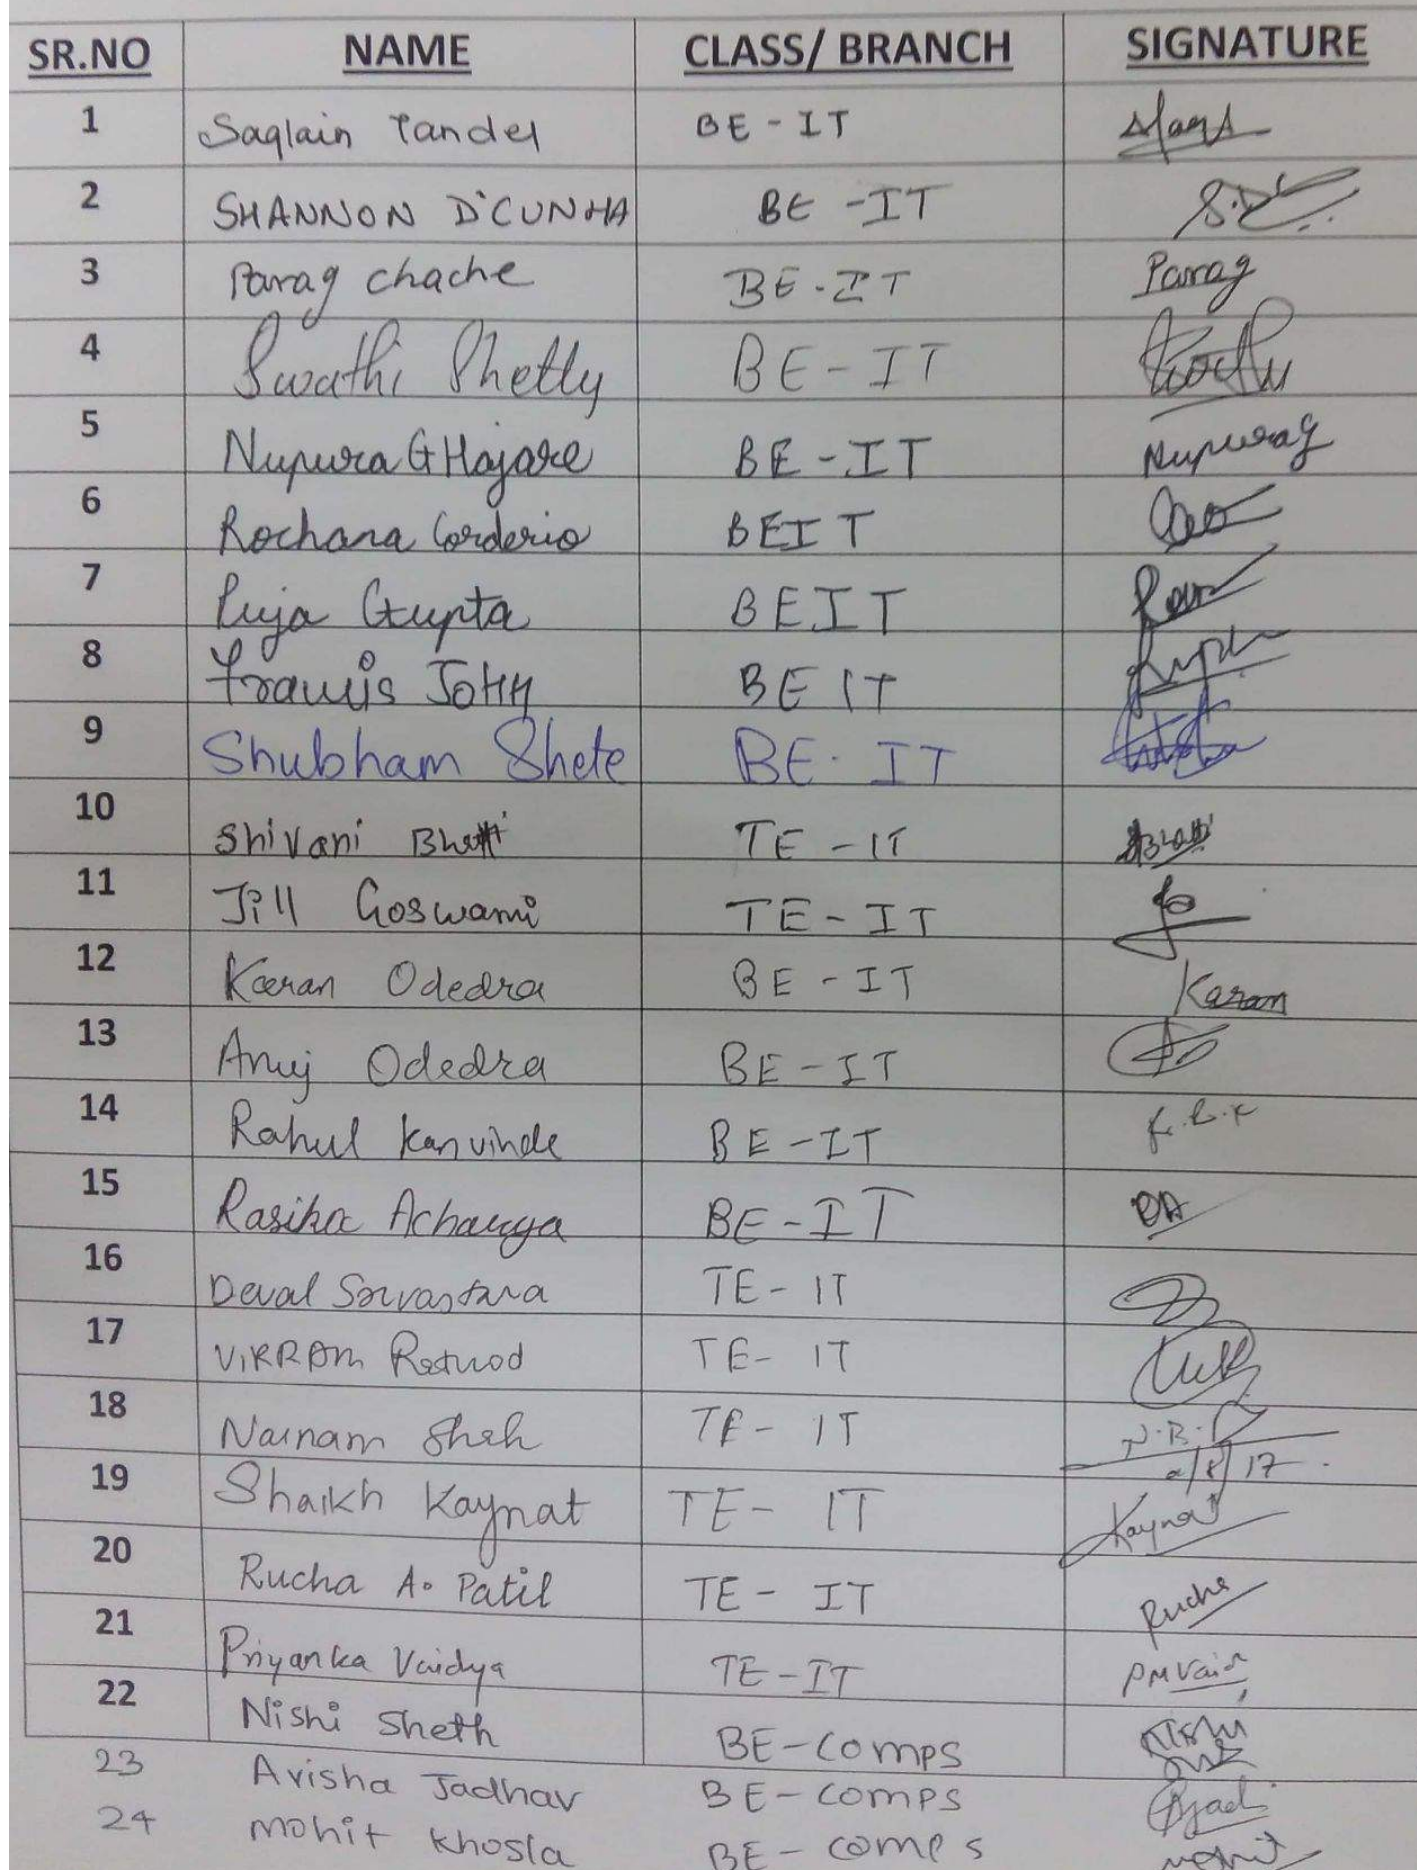 SR.NO NAME CLASS/ BRANCH SIGNATURE
1 Saqlain Tandel BE - IT
2 SHANNON D'CUNHA BE - IT S.D
3 Parag chache BE - IT Parag
4 Swathi Shetty BE - IT
5 Nupura G Hajare BE - IT Nupurag
6 Rochana Corderio BEIT
7 Puja Gupta BEIT
8 Francis JOHN BE IT
9 Shubham Shete BE - IT
10 Shivani Bhatti TE - IT
11 Jill Goswami TE - IT
12 Karan Odedra BE - IT Karan
13 Anuj Odedra BE - IT
14 Rahul Kanvinde BE - IT
15 Rasika Acharya BE - IT RA
16 Deval Srivastava TE - IT
17 VIKRAM Rathod TE - IT
18 Nainam Shah TE - IT N.B.
2/8/17
19 Shaikh Kaynat TE - IT Kaynat
20 Rucha A. Patil TE - IT Rucha
21 Priyanka Vaidya TE - IT PMVaid
22 Nishi Sheth BE - comps Nishi
23 Arisha Jadhav BE - comps
24 mohit Khosla BE - comps mohit